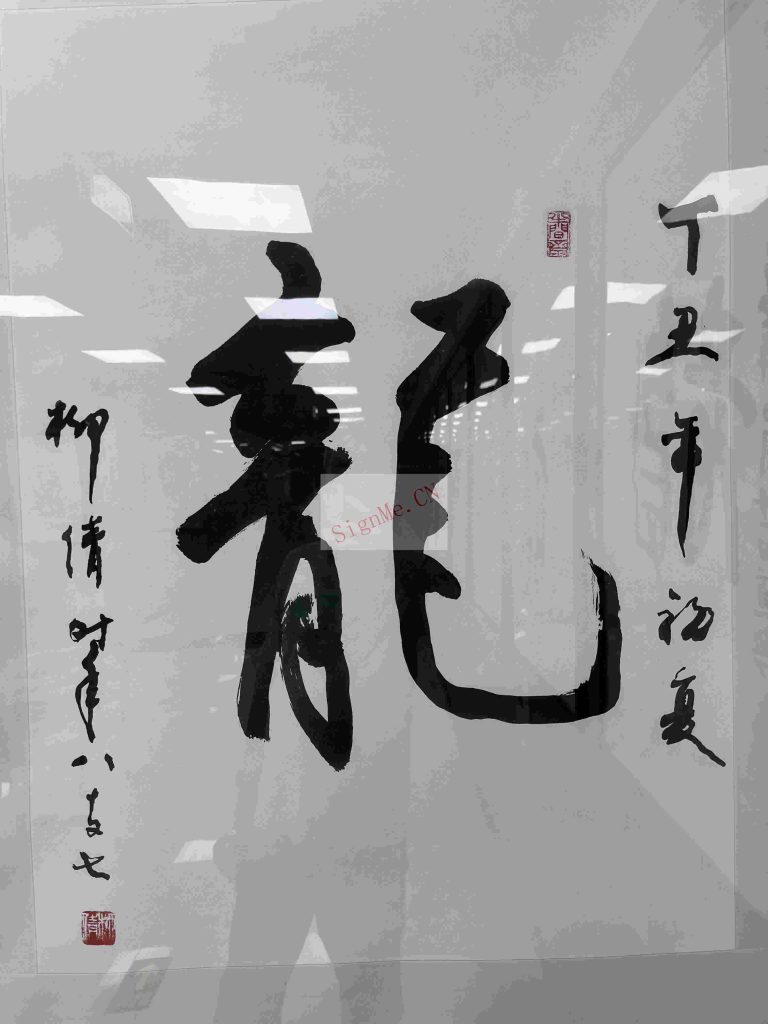 丁丑年初夏
龍
柳倩时年八十又七
柳倩
SignMe.CN